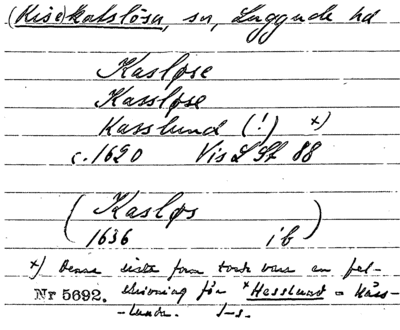 (Kise)Katslösa, sn, Luggude hd
Kasløse
Kassløse
Kasslund (!) x)
c. 1620 Vis L St 88
(Kasløs
1636 ib)
x) Denna sista form torde vara en fel-
Nr 5692. skrivning för *Hesslund = Käss-
-lunda. J-s.